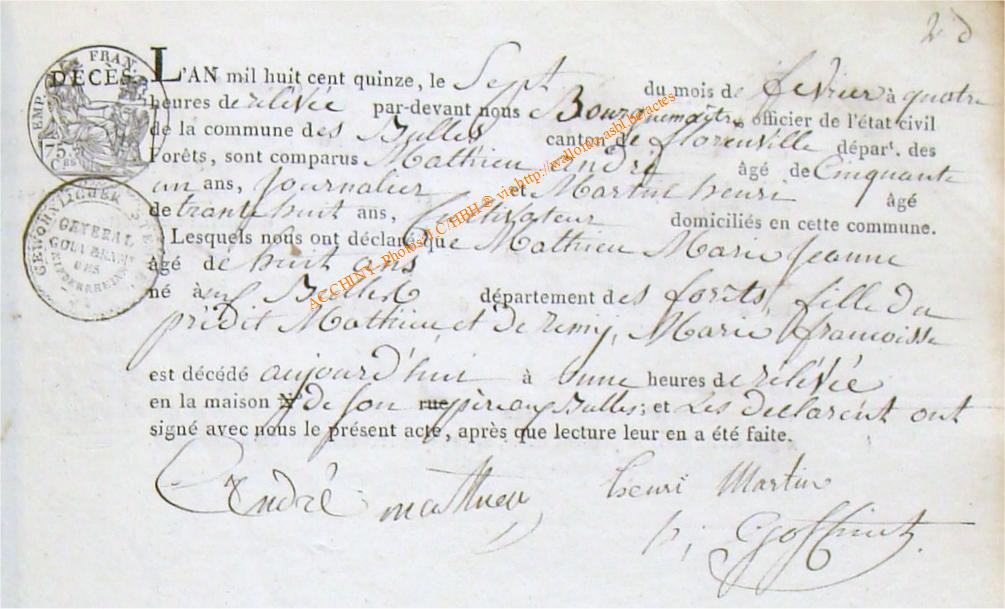 2 d
EMP. FRAN
75 CES
DÉCÈS.
L'AN mil huit cent quinze, le Sept du mois de fevrier à quatre
heures de rélévée par-devant nous Bourguemaitre officier de l'état civil
de la commune des Bulles canton de florenville départ. des
Forêts, sont comparus Mathieu André âgé de Cinquante
un ans, Journalier et Martin henri âgé
de trante huit ans, Cultivateur domiciliés en cette commune.
Lesquels nous ont déclaré que Mathieu Marie Jeanne
âgé de huit ans
né à Bulles département des forets, fille du
prédit Mathieu et de remy, Marie francoisse
est décédé aujourd'hui à unne heures de rélévée
en la maison N° de son rue père aux Bulles; et Les declarent ont
signé avec nous le présent acte, après que lecture leur en a été faite.
André mathieu henri Martin
Goffinet
GENERAL
GOUVERNEMT
DES
NIEDERRHEINS
ACCHINY-Photos LC/HBH ® via http://wallonia.asbl.be/actes